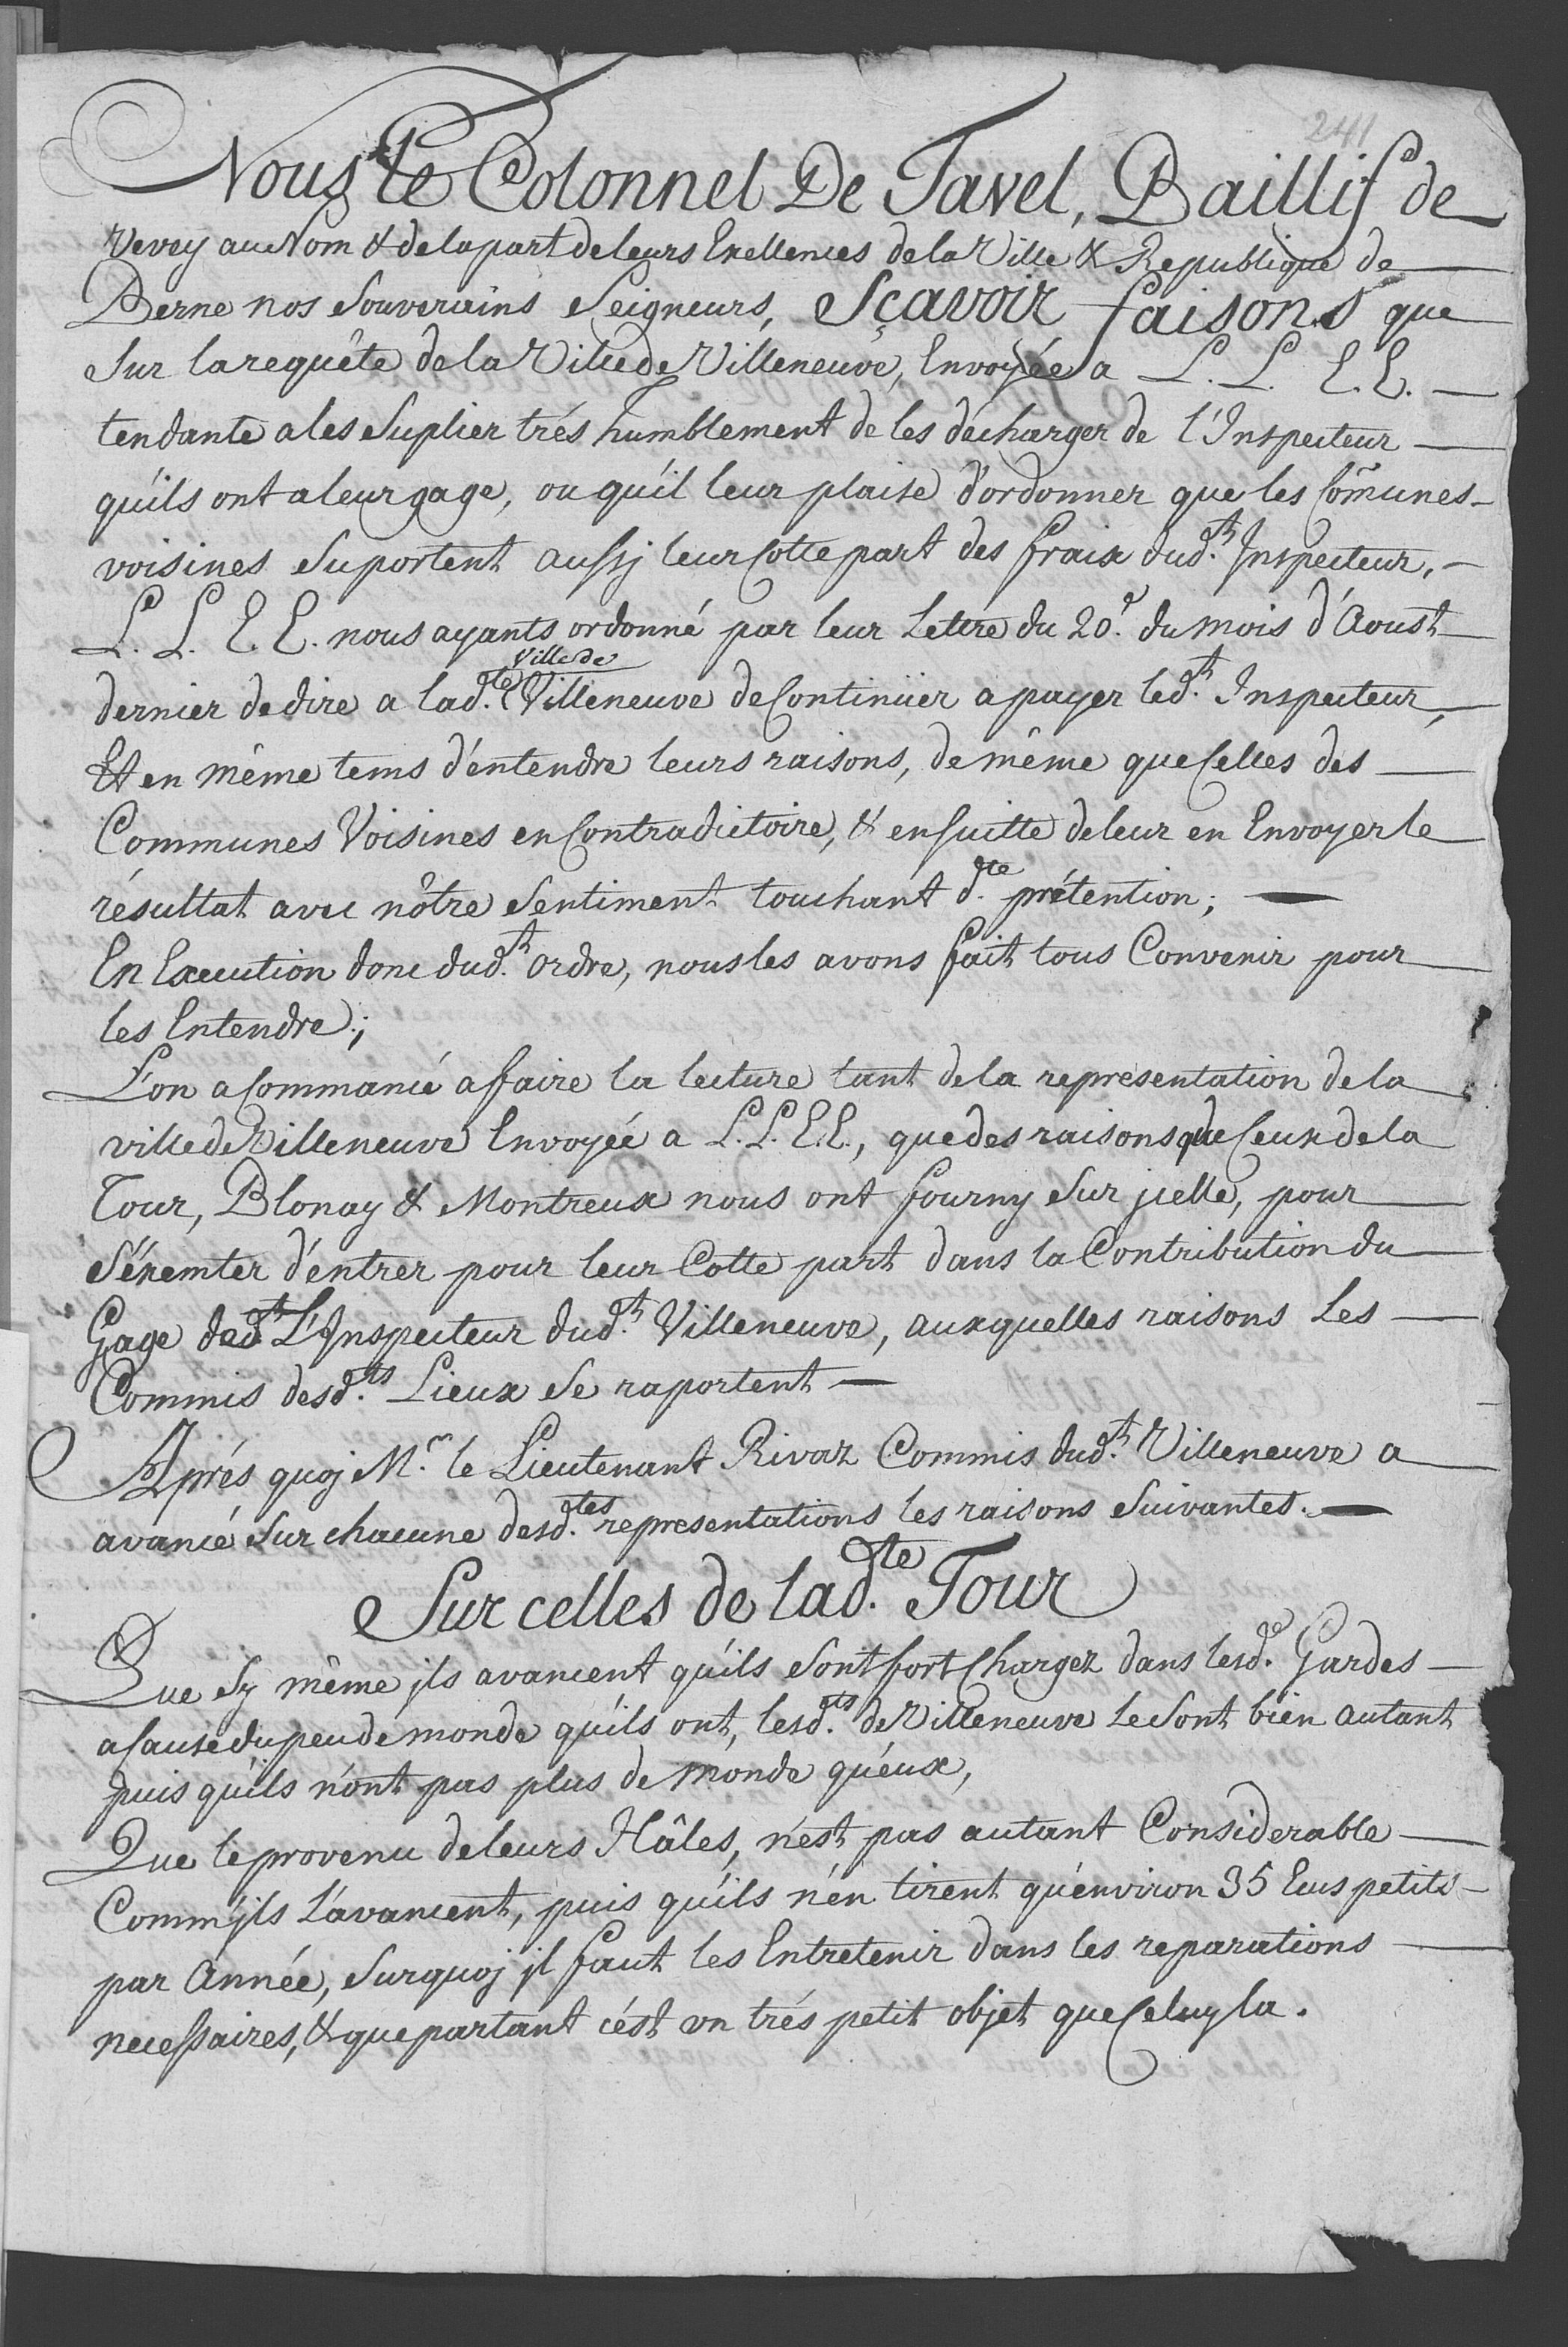 241
Nous Le Colonnel De Tavel, Baillif de
Vevey au Nom & de la part de leurs Exellences de la Ville & Republique de
Berne nos Souverains Seigneurs, Sçavoir faisons que
Sur la requête de la Ville de Villeneuve, Envoyée a L. L. E. E.
tendante a les Suplier trés humblement de les décharger de l'Inspecteur
qu'ils ont a leur gage, ou qu'il leur plaise d'ordonner que les Com̃unes
voisines Suportent aussj leur Cotte part des fraix dud.t Inspecteur,
L. L. E. E. nous ayants ordonné par leur Lettre du 20.e du mois d'Aoust
Ville de
dernier de dire a lad.te Villeneuve de Continüer a payer led.t Inspecteur,
Et en même tems d'entendre leurs raisons, de même que Celles des
Communes Voisines en Contradictoire, & ensuitte de leur en Envoyer le
résultat avec nôtre Sentiment touchant d.te prétention;
En Execution donc dud.t ordre, nous les avons fait tous Convenir pour
les Entendre;
L'on a Commancé affaire la lecture tant de la representation de la
ville de Villeneuve Envoyée a L. L. E. E., que des raisons que Ceux de la
Tour, Blonay & Montreux nous ont fourny Sur jcelle, pour
S'éxemter d'entrer pour leur Cotte part dans la Contribution du
Gage ded.t L'Inspecteur dud.t Villeneuve, auxquelles raisons Les
Commis desd.ts Lieux Se raportent
Aprés quoj M.r le Lieutenant Rivaz Commis dud.t Villeneuve a
avancé Sur chacune desd.tes representations les raisons Suivantes.
Sur celles de lad.te Tour
Que Sy même jls avancent qu'ils Sont fort Chargez dans lesd.e Gardes
a Cause du peu de monde qu'ils ont, lesd.ts de Villeneuve Le Sont bien autant
puis qu'ils n'ont pas plus de monde qu'eux,
Que le provenu de leurs Hâles, n'est pas autant Considerable
Comm'jls L'avancent, puis qu'ils n'en tirent qu'environ 35 Ecus petits
par Année, Surquoj jl faut les Entretenir dans les reparations
necessaires, & que partant c'ést vn trés petit objet que Celuy la.